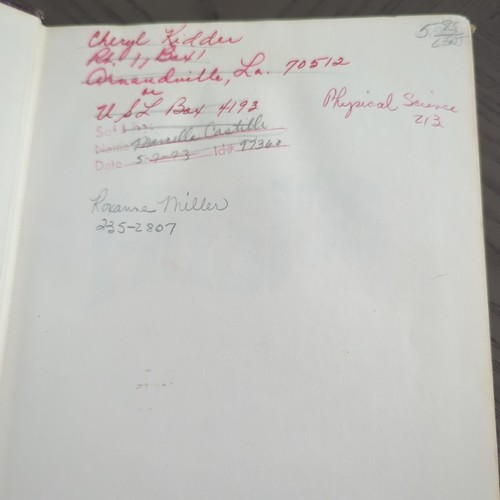 Cheryl Kidder
5.85
Rt. 1, Box 1
Arnandville, La. 70512
or
USL Box 4193
Physical Science
213
Name Marcella Castille
Date 5-2-73 Id# 97360
Roxanne Miller
235-2807